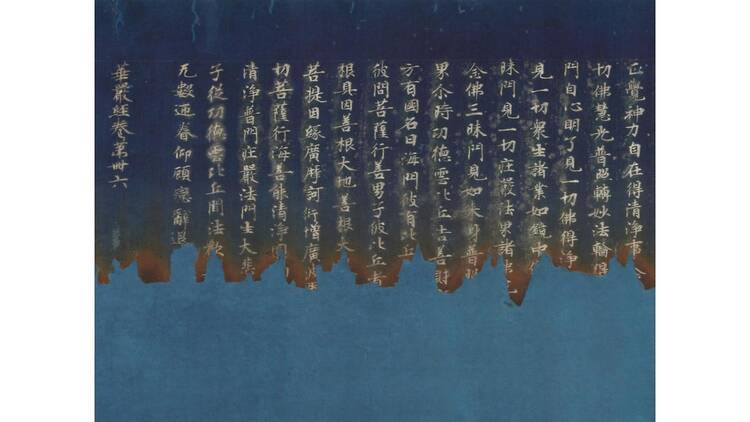 正覺神力自在得清淨
切佛慧光普照轉妙法輪得
門自心明了見一切佛得淨
見一切衆生諸業如鏡中
昧門見一切莊嚴法界諸
念佛三昧門見如來身普照
界尒時功德雲比丘告善財
方有國名曰海門彼有比丘
彼問菩薩行善男子彼比丘者
根具因善根大地善根大
菩提因緣廣摩訶衍增廣波
切菩薩行海善能清淨
清淨普門莊嚴法門生大
子從功德雲比丘聞法歡
无數迊眷仰顧戀辭退
華嚴經卷第卌六